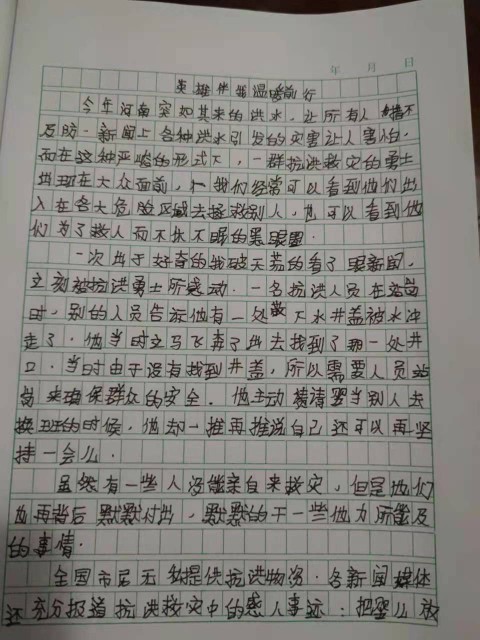 年 月 日
英雄伴我温暖前行
今年河南突如其来的洪水，让所有人措不
及防。新闻上各种洪水引发的灾害让人害怕。
而在这种严峻的形式下，一群抗洪救灾的勇士
出现在大众面前，我们经常可以看到他们出
入在各大危险区域去拯救别人，也可以看到他
们为了救人而不休不眠的黑眼圈。
一次出于好奇的我破天荒的看了眼新闻，
立刻被抗洪勇士所感动。一名抗洪人员在站岗
时，别的人员告诉他有一处 下水井盖被水冲
走了，他当时立马飞奔了出去找到了那一处井
口。当时由于没有找到井盖，所以需要人员站
岗来确保群众的安全。他主动 当别人去
换班的时候，他却一推再推说自己还可以再坚
持一会儿。
虽然有一些人没能亲自来救灾，但是他们
也再背后默默付出，默默的干一些他力所能及
的事情。
全国市居无 提供抗洪物资。各新闻媒体
还充分报道抗洪救灾中的感人事迹；把婴儿放